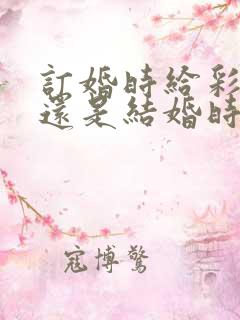 訂婚時給彩
還是結婚時
寇博驚